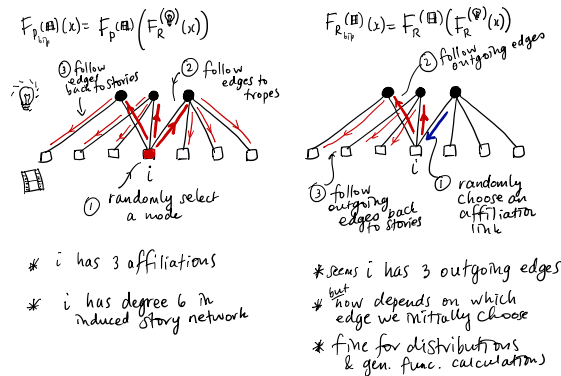 F_{P_{bip}}^{(⊞)}(x) = F_P^{(⊞)}(F_R^{(💡)}(x))
③ follow
edges
back to stories
② follow
edges to
tropes
i
① randomly select
a node
* i has 3 affiliations
* i has degree 6 in
induced story network
F_{R_{bip}}^{(⊞)}(x) = F_R^{(⊞)}(F_R^{(💡)}(x))
② follow
outgoing edges
i
③ follow
outgoing
edges back
to stories
① randomly
choose an
affiliation
link
* seems i has 3 outgoing edges
but
* now depends on which
edge we initially choose
* fine for distributions
& gen. func. calculations